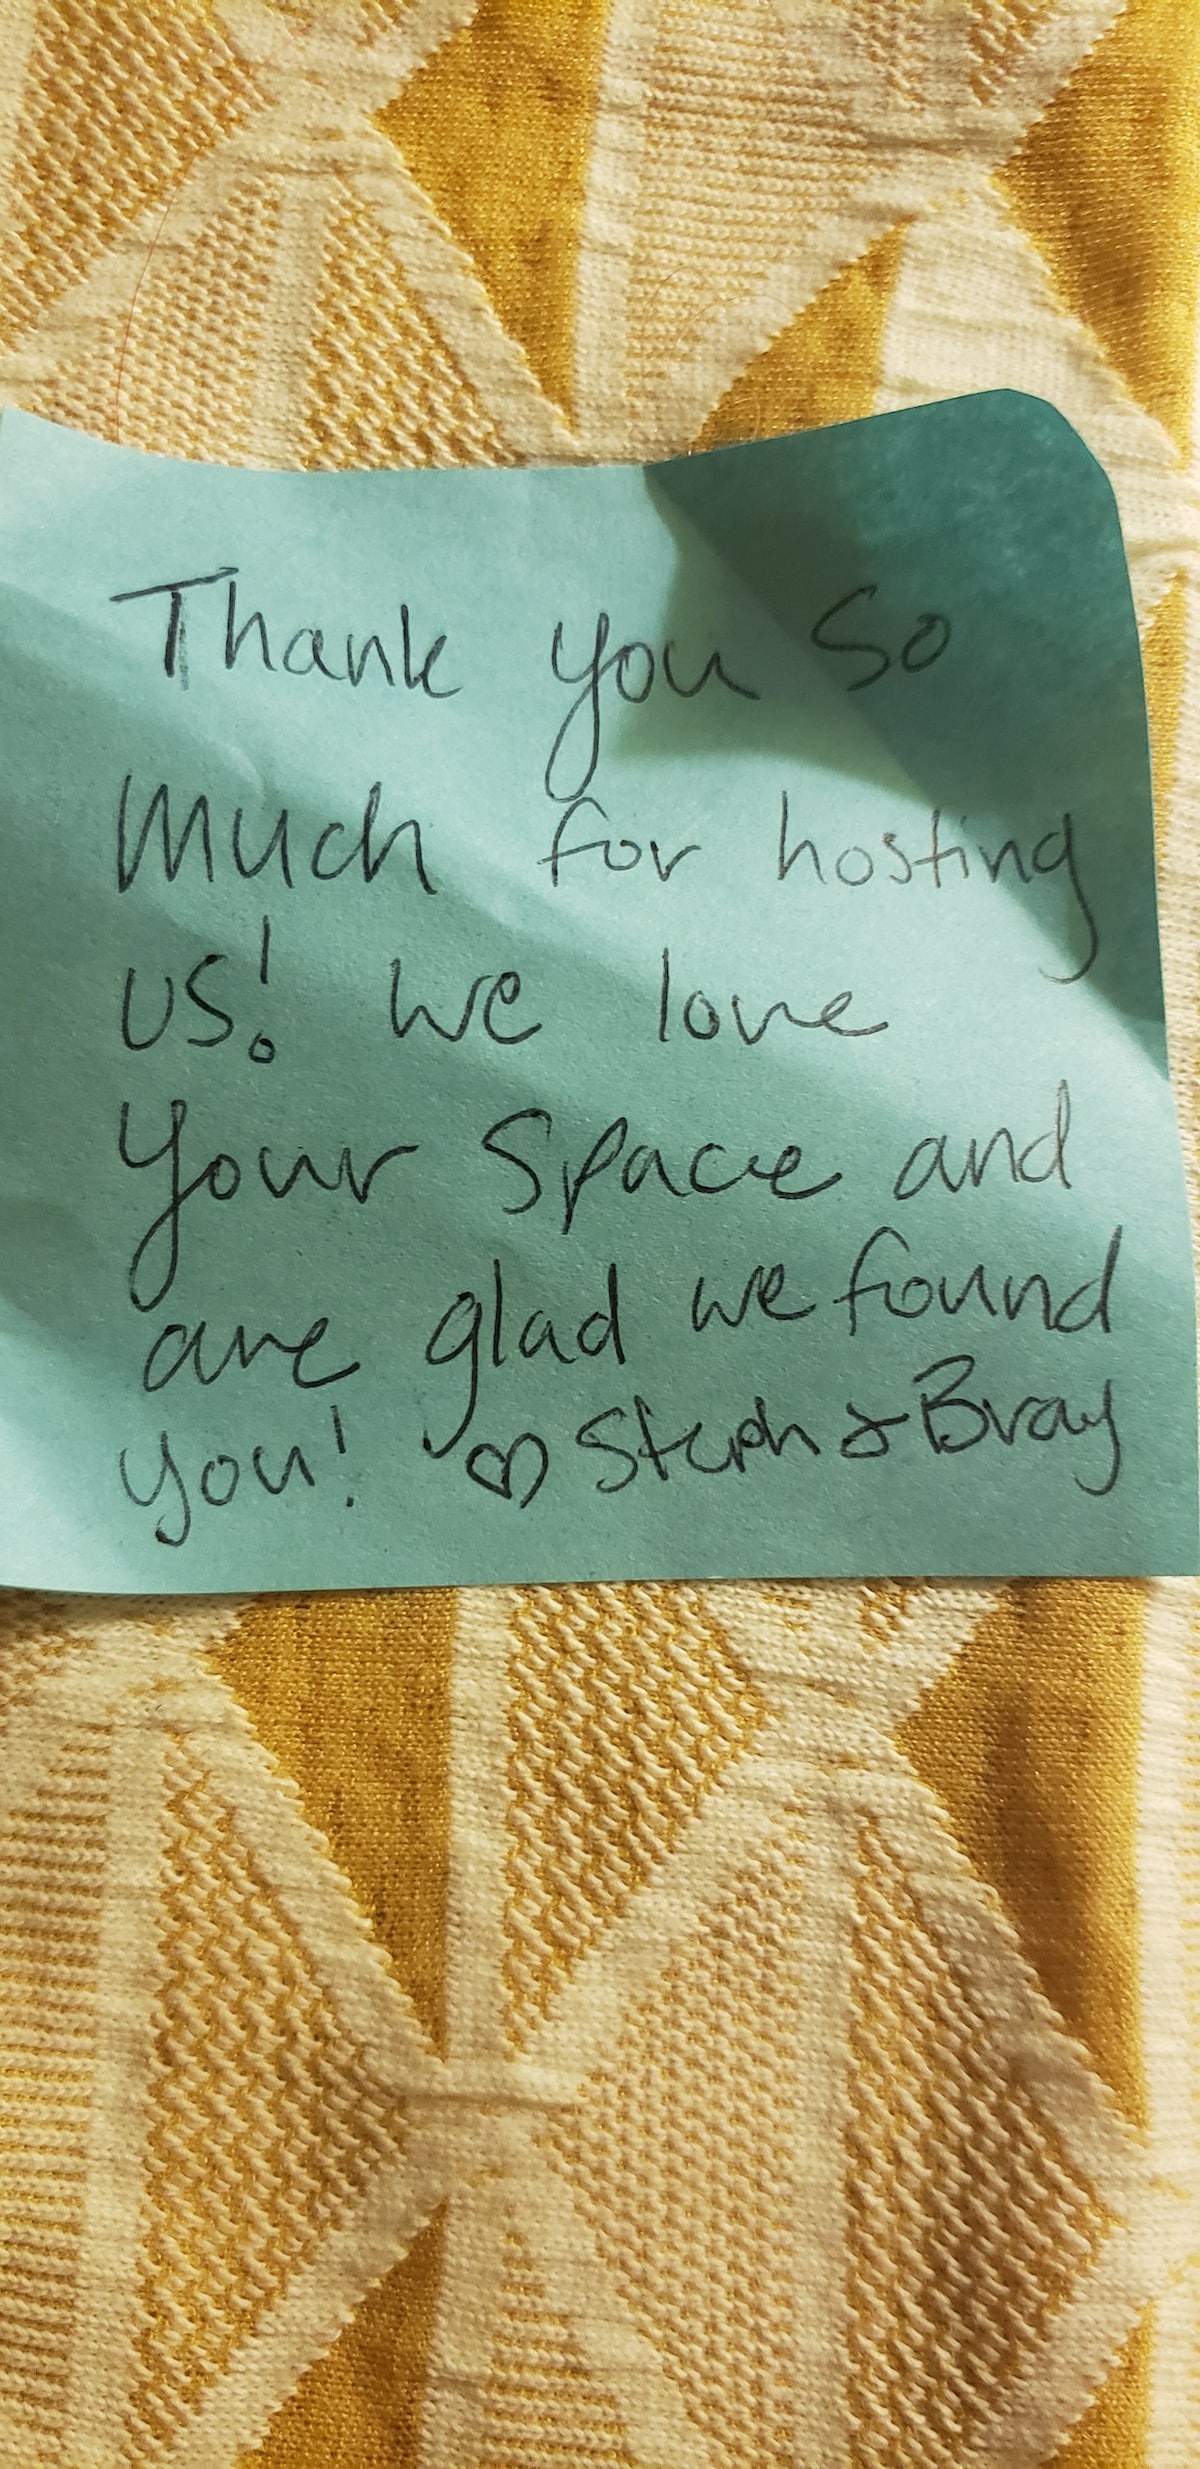 Thank you So
Much for hosting
us! We love
Your Space and
are glad we found
you! ♡ Steph & Bray